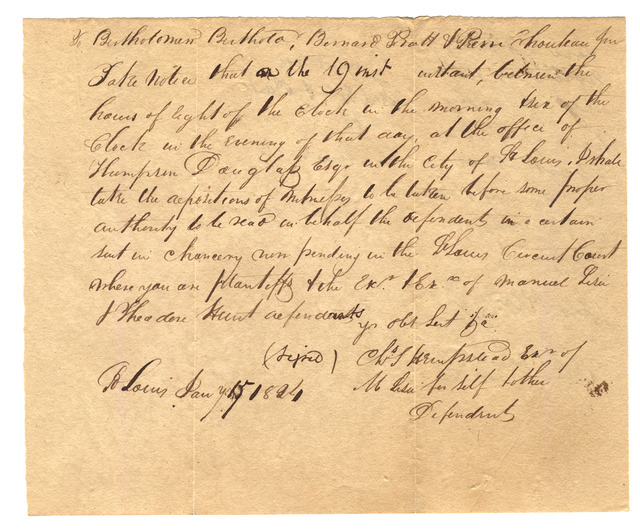 To Bertholomew Berthold, Bernard Pratt & Pierre Chouteau Jun
Take notice that on the 19 inst instant, between the
hours of Eight of the Clock in the morning & six of the
Clock in the evening of that day, at the office of
Thompson Douglass Esqr in the City of St Louis, I shall
take the depositions of Witnesses to be taken before some proper
authority to be read in behalf the defendents in a certain
suit in Chancery now pending in the St Louis Circuit Court
where you are plantiffs & the Exr & Ex of Manuel Lisa
& Theodore Hunt defendants
yr obt Sert &c
(Signed) Chs S Hempstead Exr of
St Louis Jany 15 1824 M Lisa for self & other
Defendents